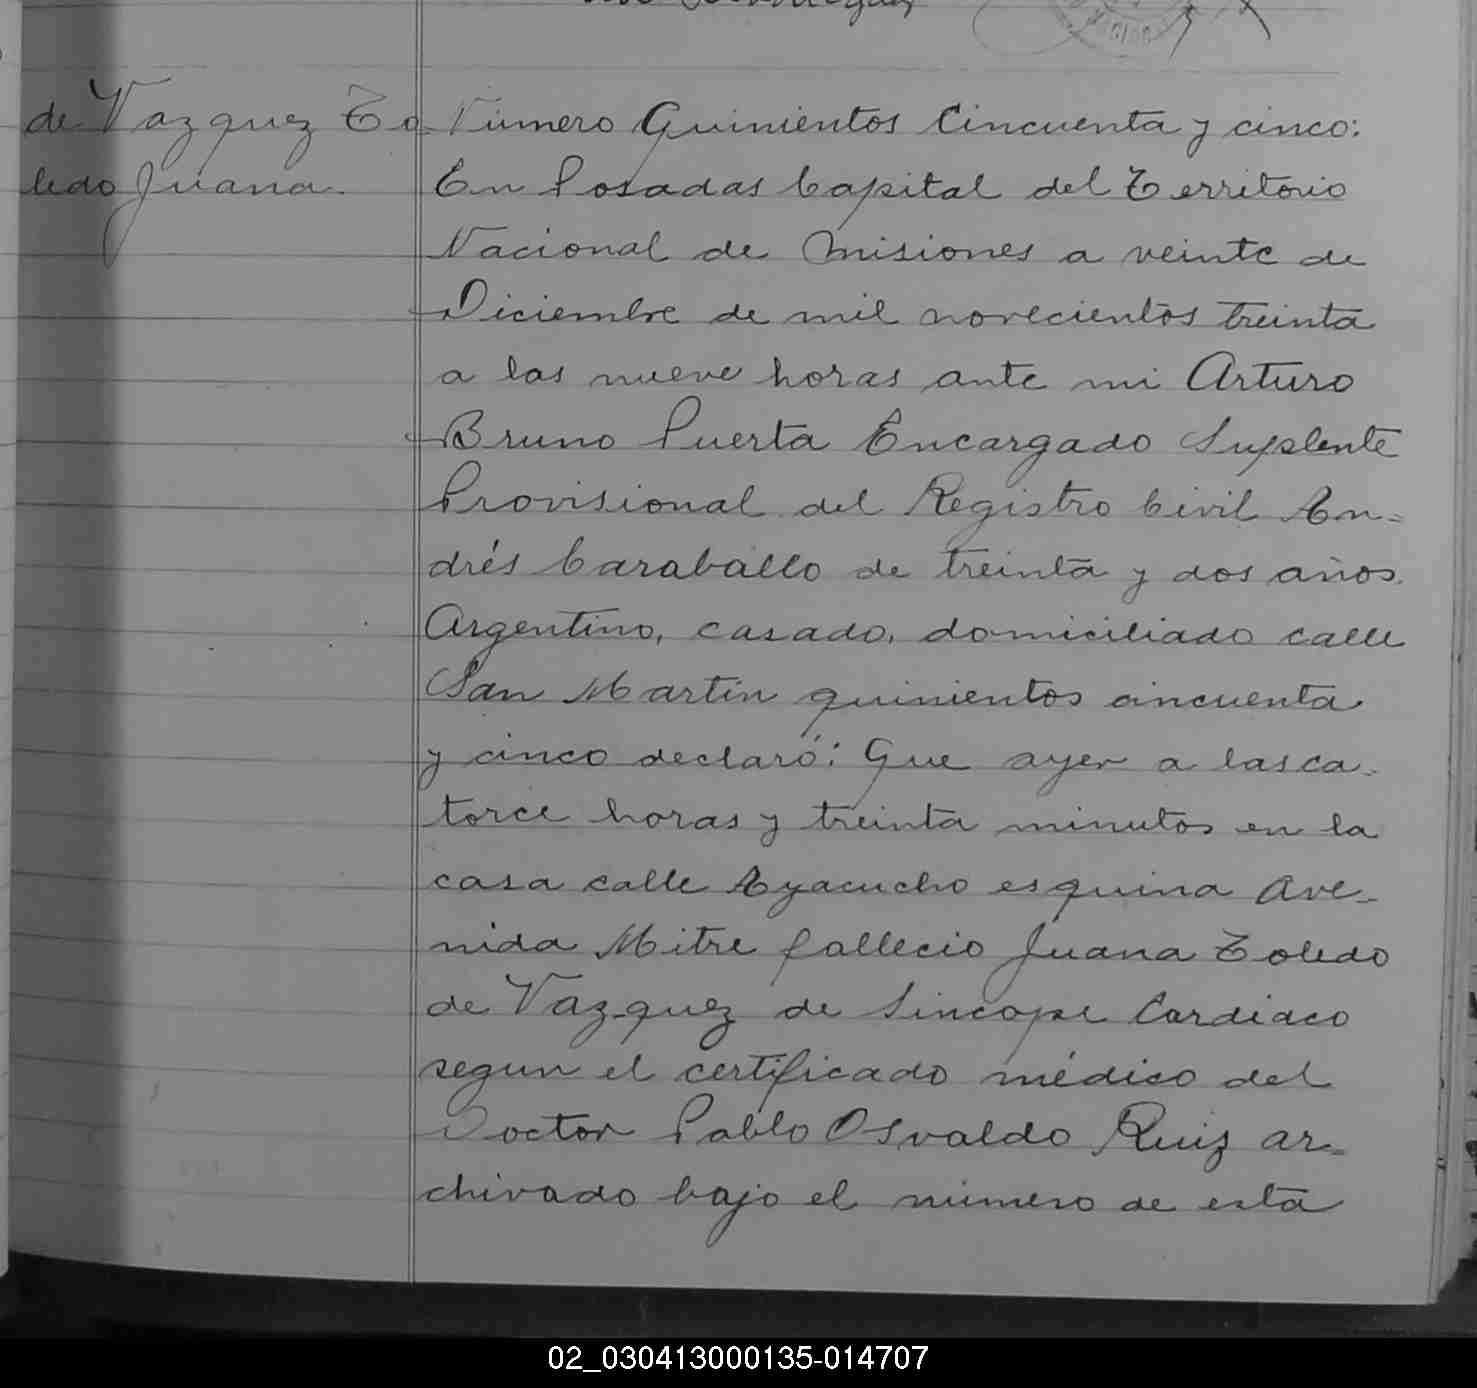 de Vazquez To
ledo Juana.
Número Quinientos Cincuenta y cinco:
En Posadas Capital del Territorio
Nacional de Misiones a veinte de
Diciembre de mil novecientos treinta
a las nueve horas ante mi Arturo
Bruno Puerta Encargado Suplente
Provisional del Registro Civil An-
drés Caraballo de treinta y dos años
Argentino, casado, domiciliado calle
San Martin quinientos cincuenta
y cinco declaró: Que ayer a las ca-
torce horas y treinta minutos en la
casa calle Ayacucho esquina Ave-
nida Mitre fallecio Juana Toledo
de Vazquez de Sincope Cardiaco
segun el certificado médico del
Doctor Pablo Osvaldo Ruiz ar-
chivado bajo el número de esta
02_030413000135-014707